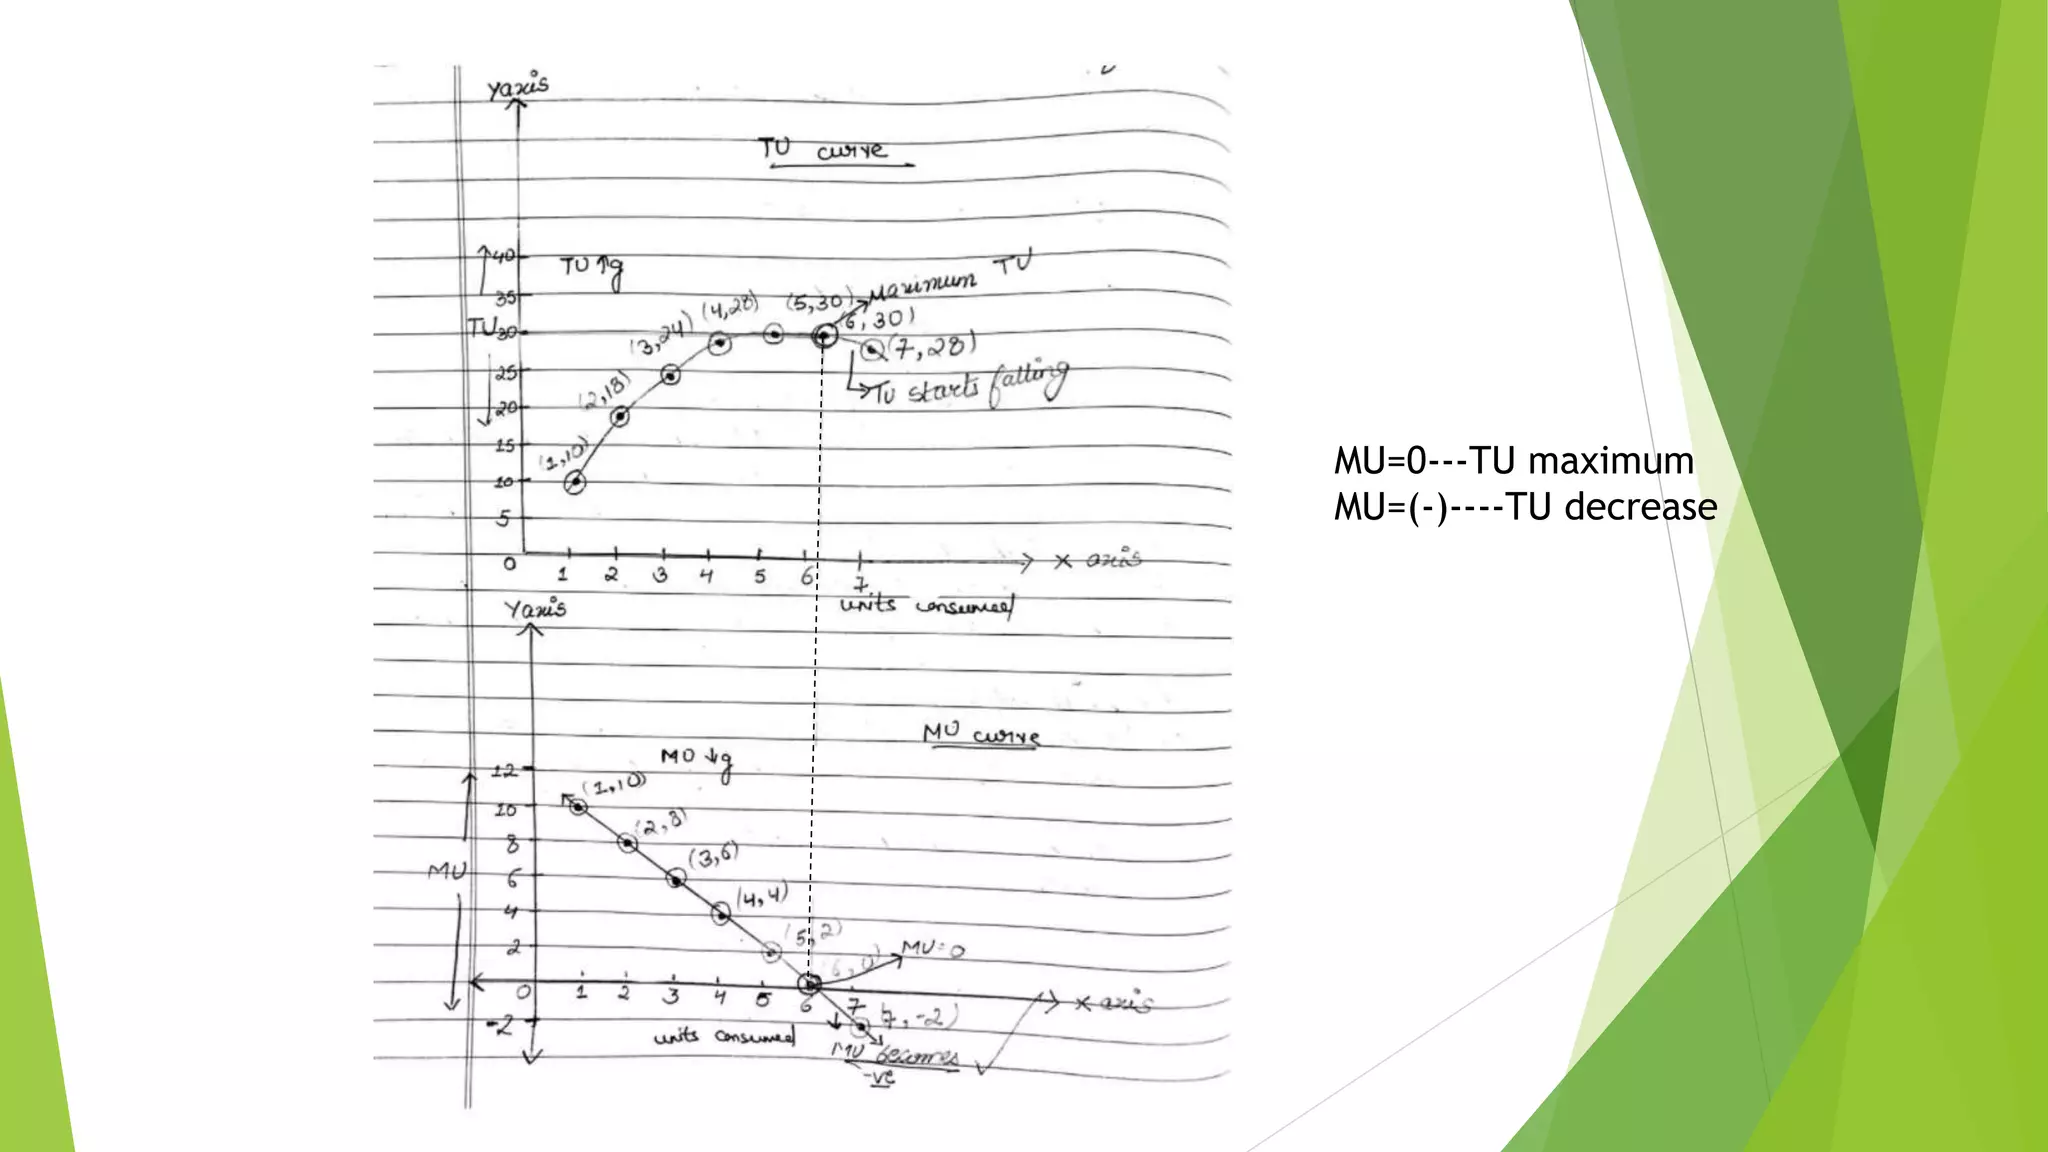 Yaxis
TU curve
40
TU ↑g
Maximum TU
35
(4,28) (5,30)
(6,30)
TU 30
(3,24)
(7,28)
25
TU starts falling
(2,18)
20
15
(1,10)
10
5
0 1 2 3 4 5 6 7
X axis
units consumed
Yaxis
MU curve
MU ↓g
12
(1,10)
10
(2,8)
8
(3,6)
MU
6
(4,4)
4
(5,2)
2
MU=0
(6,0)
0 1 2 3 4 5 6 7
X axis
(7,-2)
-2
units consumed
MU becomes
-ve
MU=0---TU maximum
MU=(-)----TU decrease